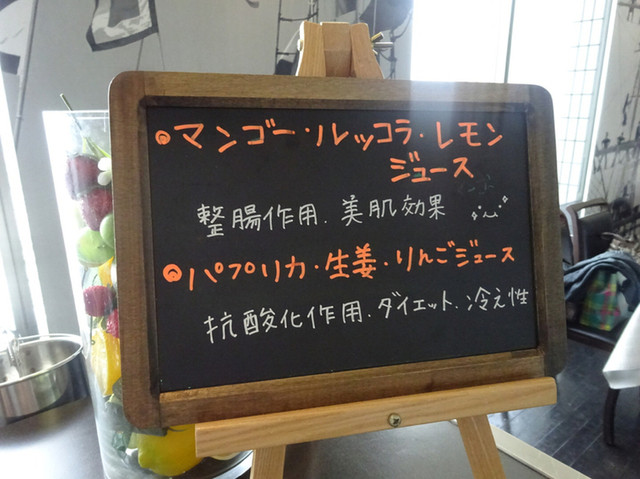 ◎マンゴー・ルッコラ・レモン
ジュース
整腸作用.美肌効果
◎パプリカ・生姜・りんごジュース
抗酸化作用.ダイエット.冷え性